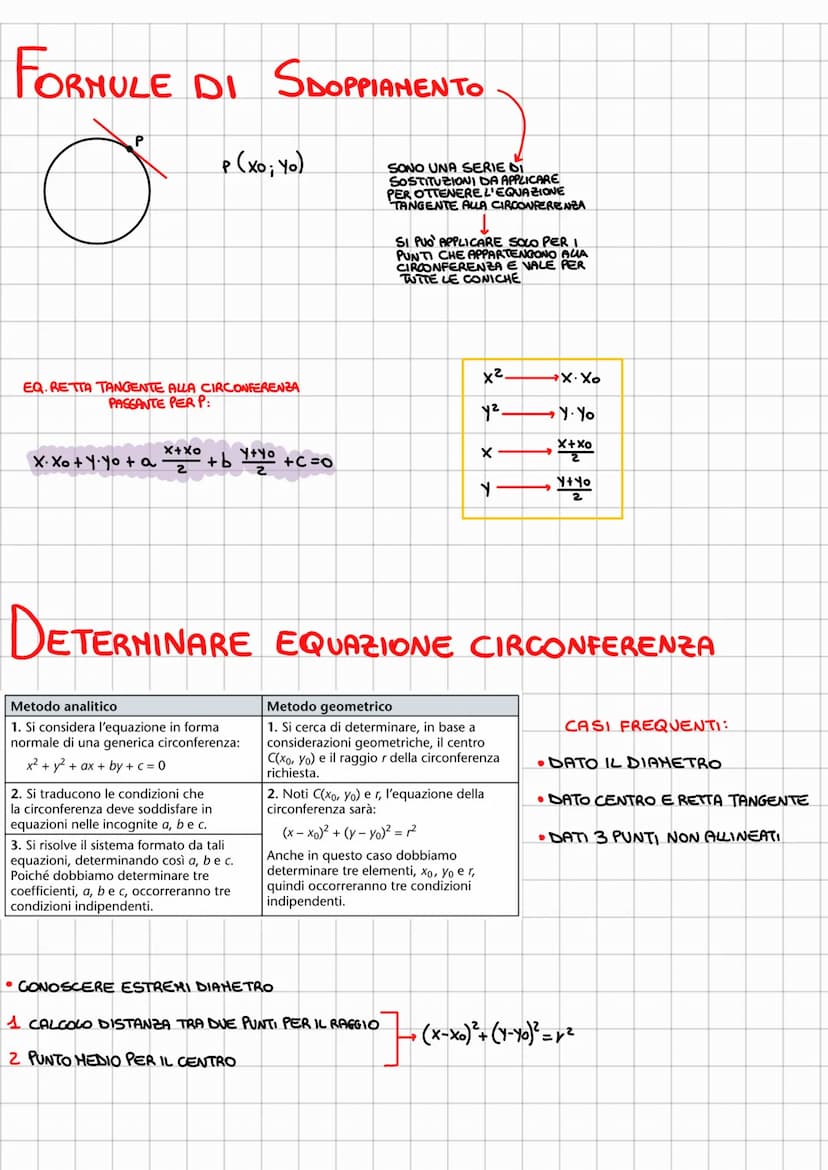 FORMULE DI SDOPPIAMENTO
P
P (x₀; y₀)
SONO UNA SERIE DI
SOSTITUZIONI DA APPLICARE
PER OTTENERE L'EQUAZIONE
TANGENTE ALLA CIRCONFERENZA
SI PUÒ APPLICARE SOLO PER I
PUNTI CHE APPARTENGONO ALLA
CIRCONFERENZA E VALE PER
TUTTE LE CONICHE
EQ. RETTA TANGENTE ALLA CIRCONFERENZA
PASSANTE PER P:
x·x₀ + y·y₀ + a (x+x₀)/2 + b (y+y₀)/2 + c = 0
x² → x·x₀
y² → y·y₀
x → (x+x₀)/2
y → (y+y₀)/2
DETERMINARE EQUAZIONE CIRCONFERENZA
Metodo analitico
1. Si considera l'equazione in forma
normale di una generica circonferenza:
x² + y² + ax + by + c = 0
2. Si traducono le condizioni che
la circonferenza deve soddisfare in
equazioni nelle incognite a, b e c.
3. Si risolve il sistema formato da tali
equazioni, determinando così a, b e c.
Poiché dobbiamo determinare tre
coefficienti, a, b e c, occorreranno tre
condizioni indipendenti.
Metodo geometrico
1. Si cerca di determinare, in base a
considerazioni geometriche, il centro
C(x₀, y₀) e il raggio r della circonferenza
richiesta.
2. Noti C(x₀, y₀) e r, l'equazione della
circonferenza sarà:
(x – x₀)² + (y – y₀)² = r²
Anche in questo caso dobbiamo
determinare tre elementi, x₀, y₀ e r,
quindi occorreranno tre condizioni
indipendenti.
CASI FREQUENTI:
• DATO IL DIAMETRO
• DATO CENTRO E RETTA TANGENTE
• DATI 3 PUNTI NON ALLINEATI
• CONOSCERE ESTREMI DIAMETRO
1 CALCOLO DISTANZA TRA DUE PUNTI PER IL RAGGIO
2 PUNTO MEDIO PER IL CENTRO
→ (x-x₀)² + (y-y₀)² = r²